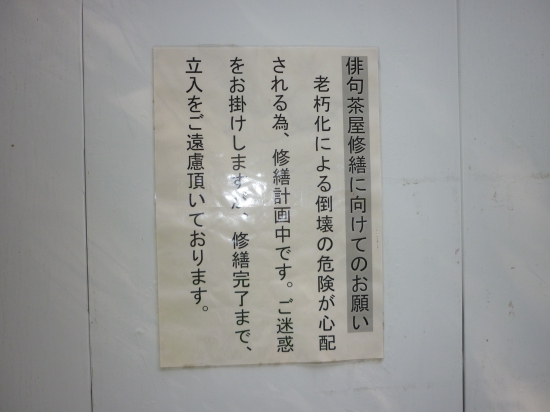 俳句茶屋修繕に向けてのお願い
老朽化による倒壊の危険が心配
される為、修繕計画中です。ご迷惑
をお掛けしますが、修繕完了まで、
立入をご遠慮頂いております。